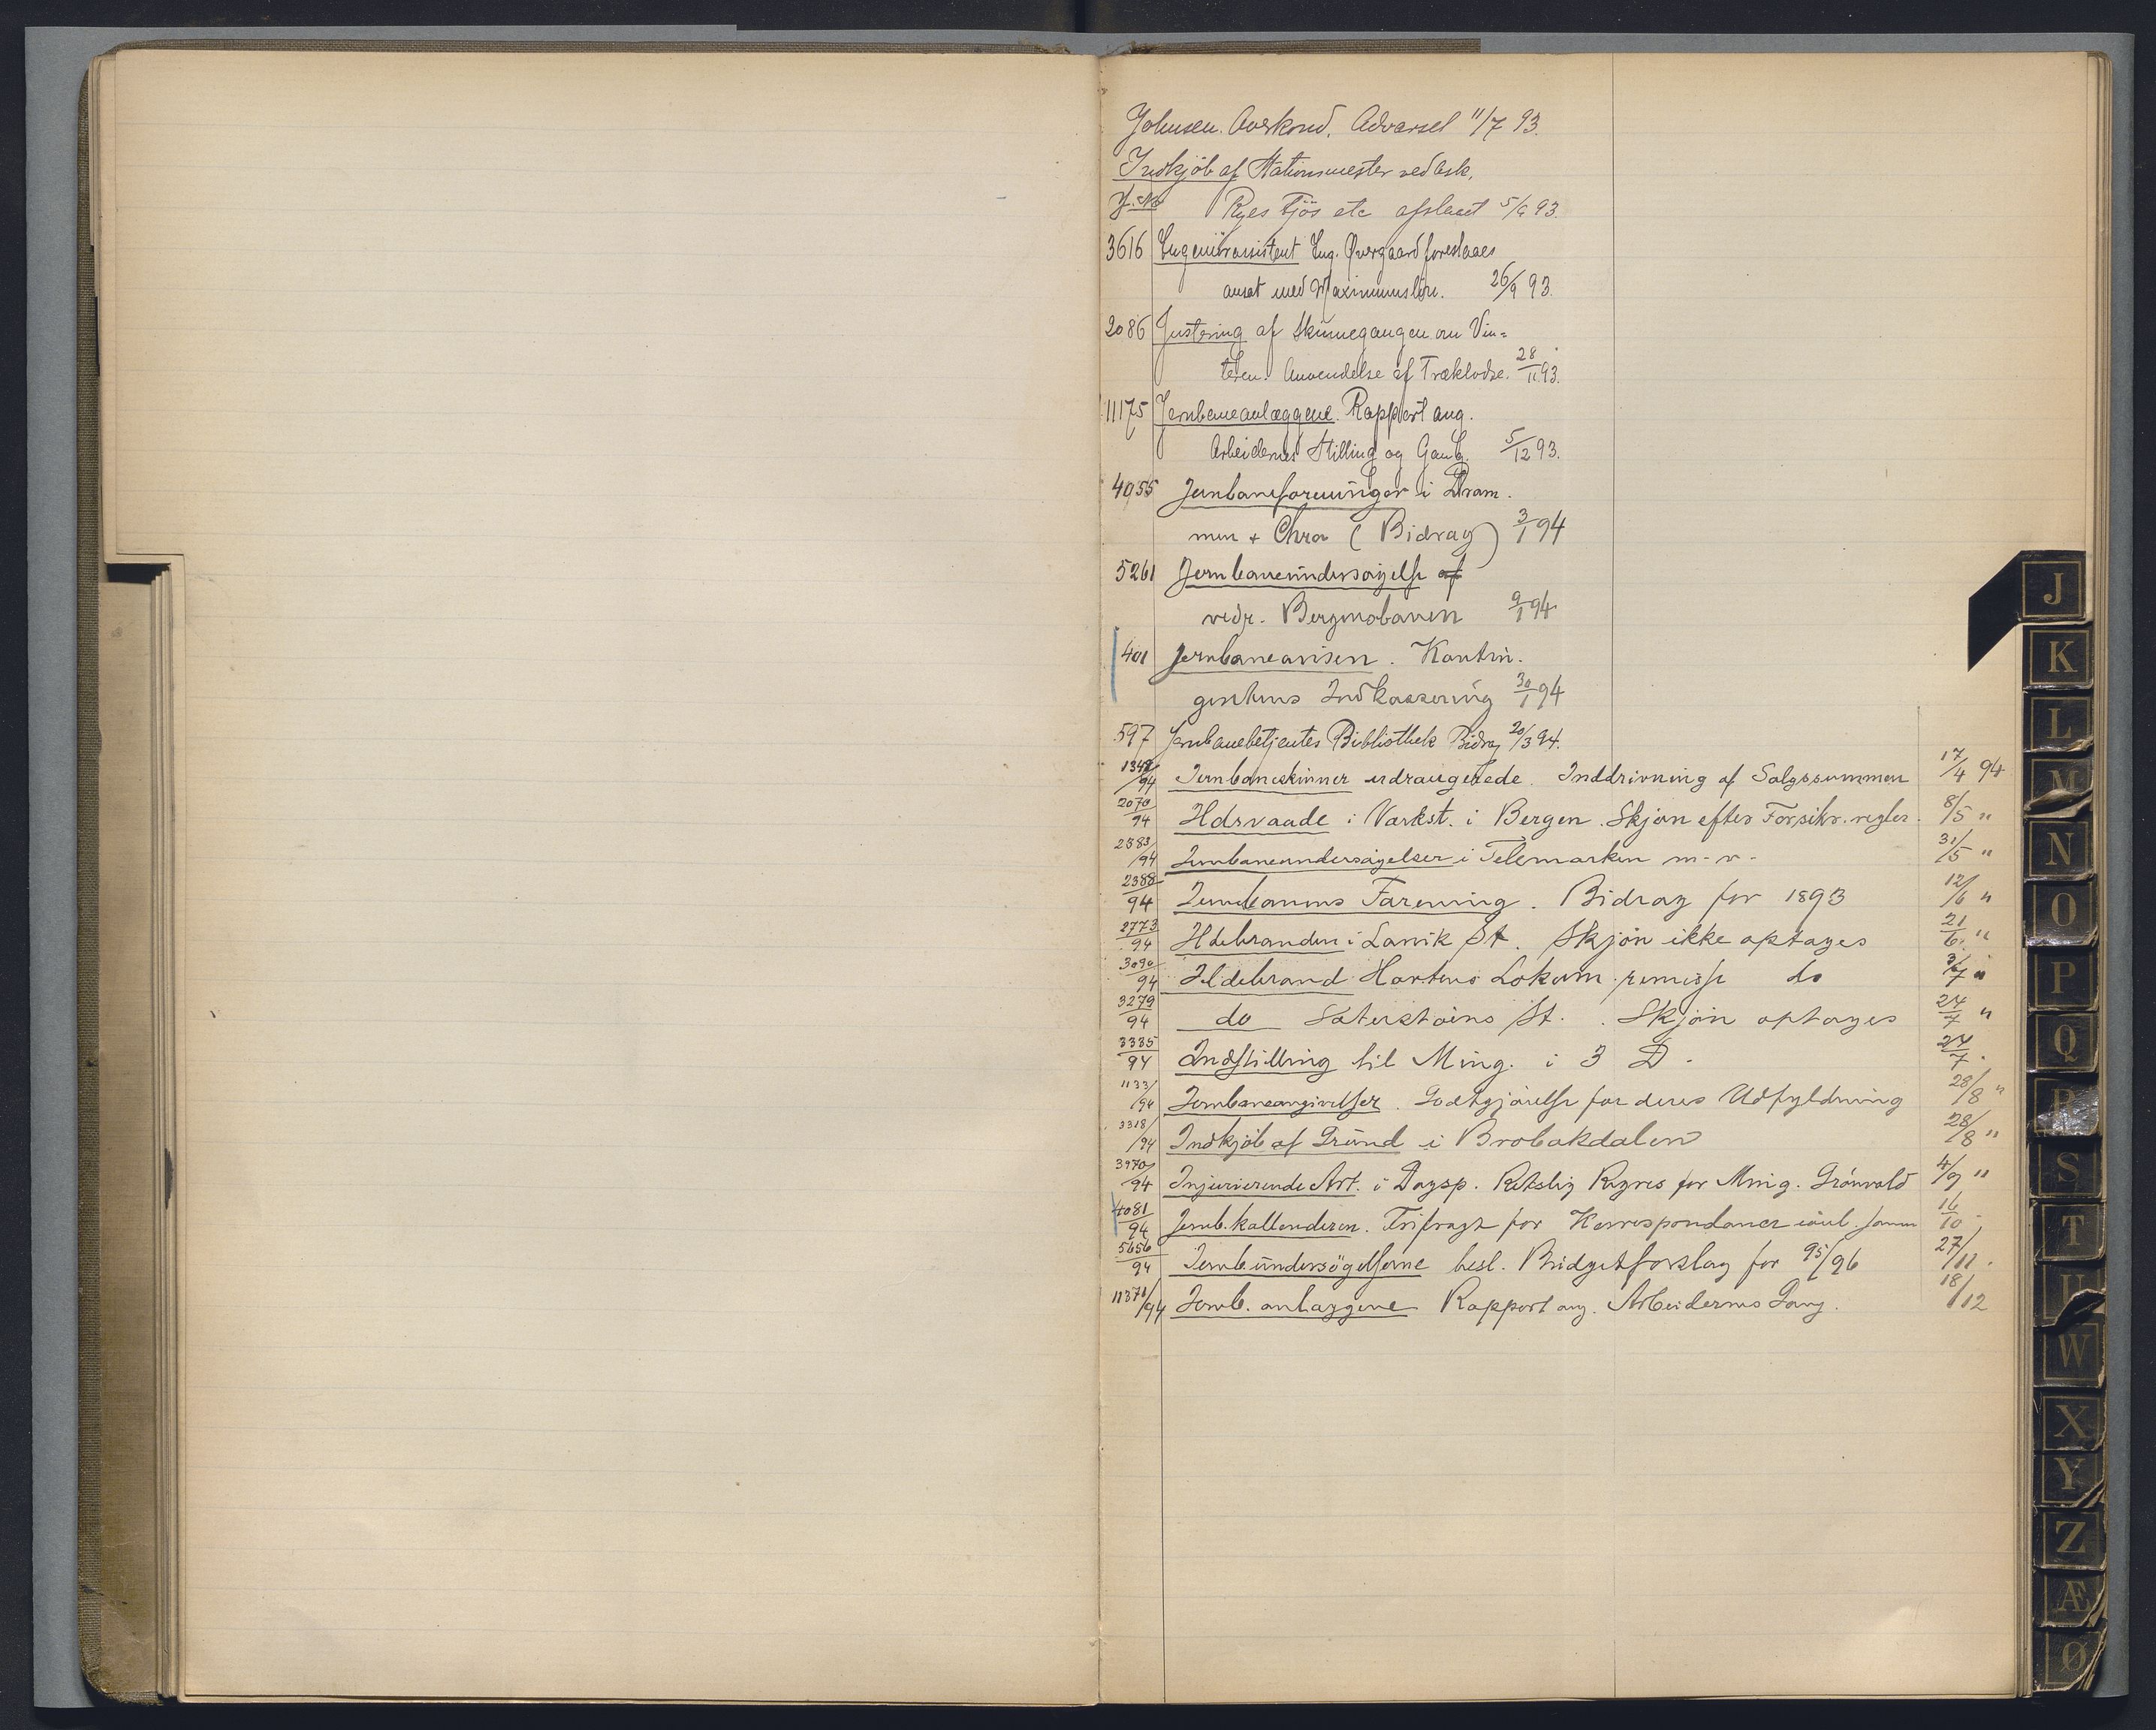 Johnsen. Overkond. Advarsel 11/7 93.
Indkjöb af Stationsmester ved Ask.
J. No Ryes Tjös etc afslaaet 5/9 93.
3616 Ingeniörassistent Ing. Øvergaard foreslaaes
ansat med Maximumslön. 26/9 93.
2086 Justering af Skinnegangen om Vin=
teren. Anvendelse af Træklodse. 28/11 93.
11175 Jernbaneanlæggene. Rapport ang.
Arbeidernes Stilling og Gang. 5/12 93.
4955 Jernbaneforeninger i Dram.
men + Chra (Bidrag) 3/1 94
5261 Jernbaneundersøgelse af
vedr. Bergensbanen 9/1 94
401 Jernbaneavisen. Kontin.
gentens Indkassering 30/1 94
597 Jernbanebetjentes Bibliothek Bidrag 20/3 94.
1348/94 Jernbaneskinner udrangerede. Inddrivning af Salgssummen 17/4 94
2070/94 Ildsvaade i Værkst. i Bergen. Skjøn efter Forsikr. regler. 8/5 "
2383/94 Jernbaneundersøgelser i Telemarken m. v. 31/5 "
2388/94 Jernbanens Forening. Bidrag for 1893 12/6 "
2773/94 Ildebranden i Larvik St. Skjøn ikke optages 21/6 "
3090/94 Ildebrand Hortens Lokom. remisse do 3/7 "
3279/94 do Sætersteins St. Skjøn optages 24/7 "
3335/94 Indstilling til Ming. i 3 D. 24/7.
1133/94 Jernbaneangivelser. Godtgjørelse for deres Udfyldning 28/8 "
3318/94 Indkjöb af Grund i Brobakdalen 28/8 "
3970/94 Injurierende Art. i Dagsp. Retslig Regres for Ming. Grönvold 4/9 "
4081/94 Jernb. kallenderen. Frifragt for Korrespondance 16/10
5656/94 Jernb undersögelserne besl. Budgetforslag for 95/96 27/11.
11371/94 Jernb. anlæggene Rapport ang. Arbeidernes Gang. 18/12
J
K
L
M
N
O
P
Q
R
S
T
U
W
X
Y
Z
Æ
Ø